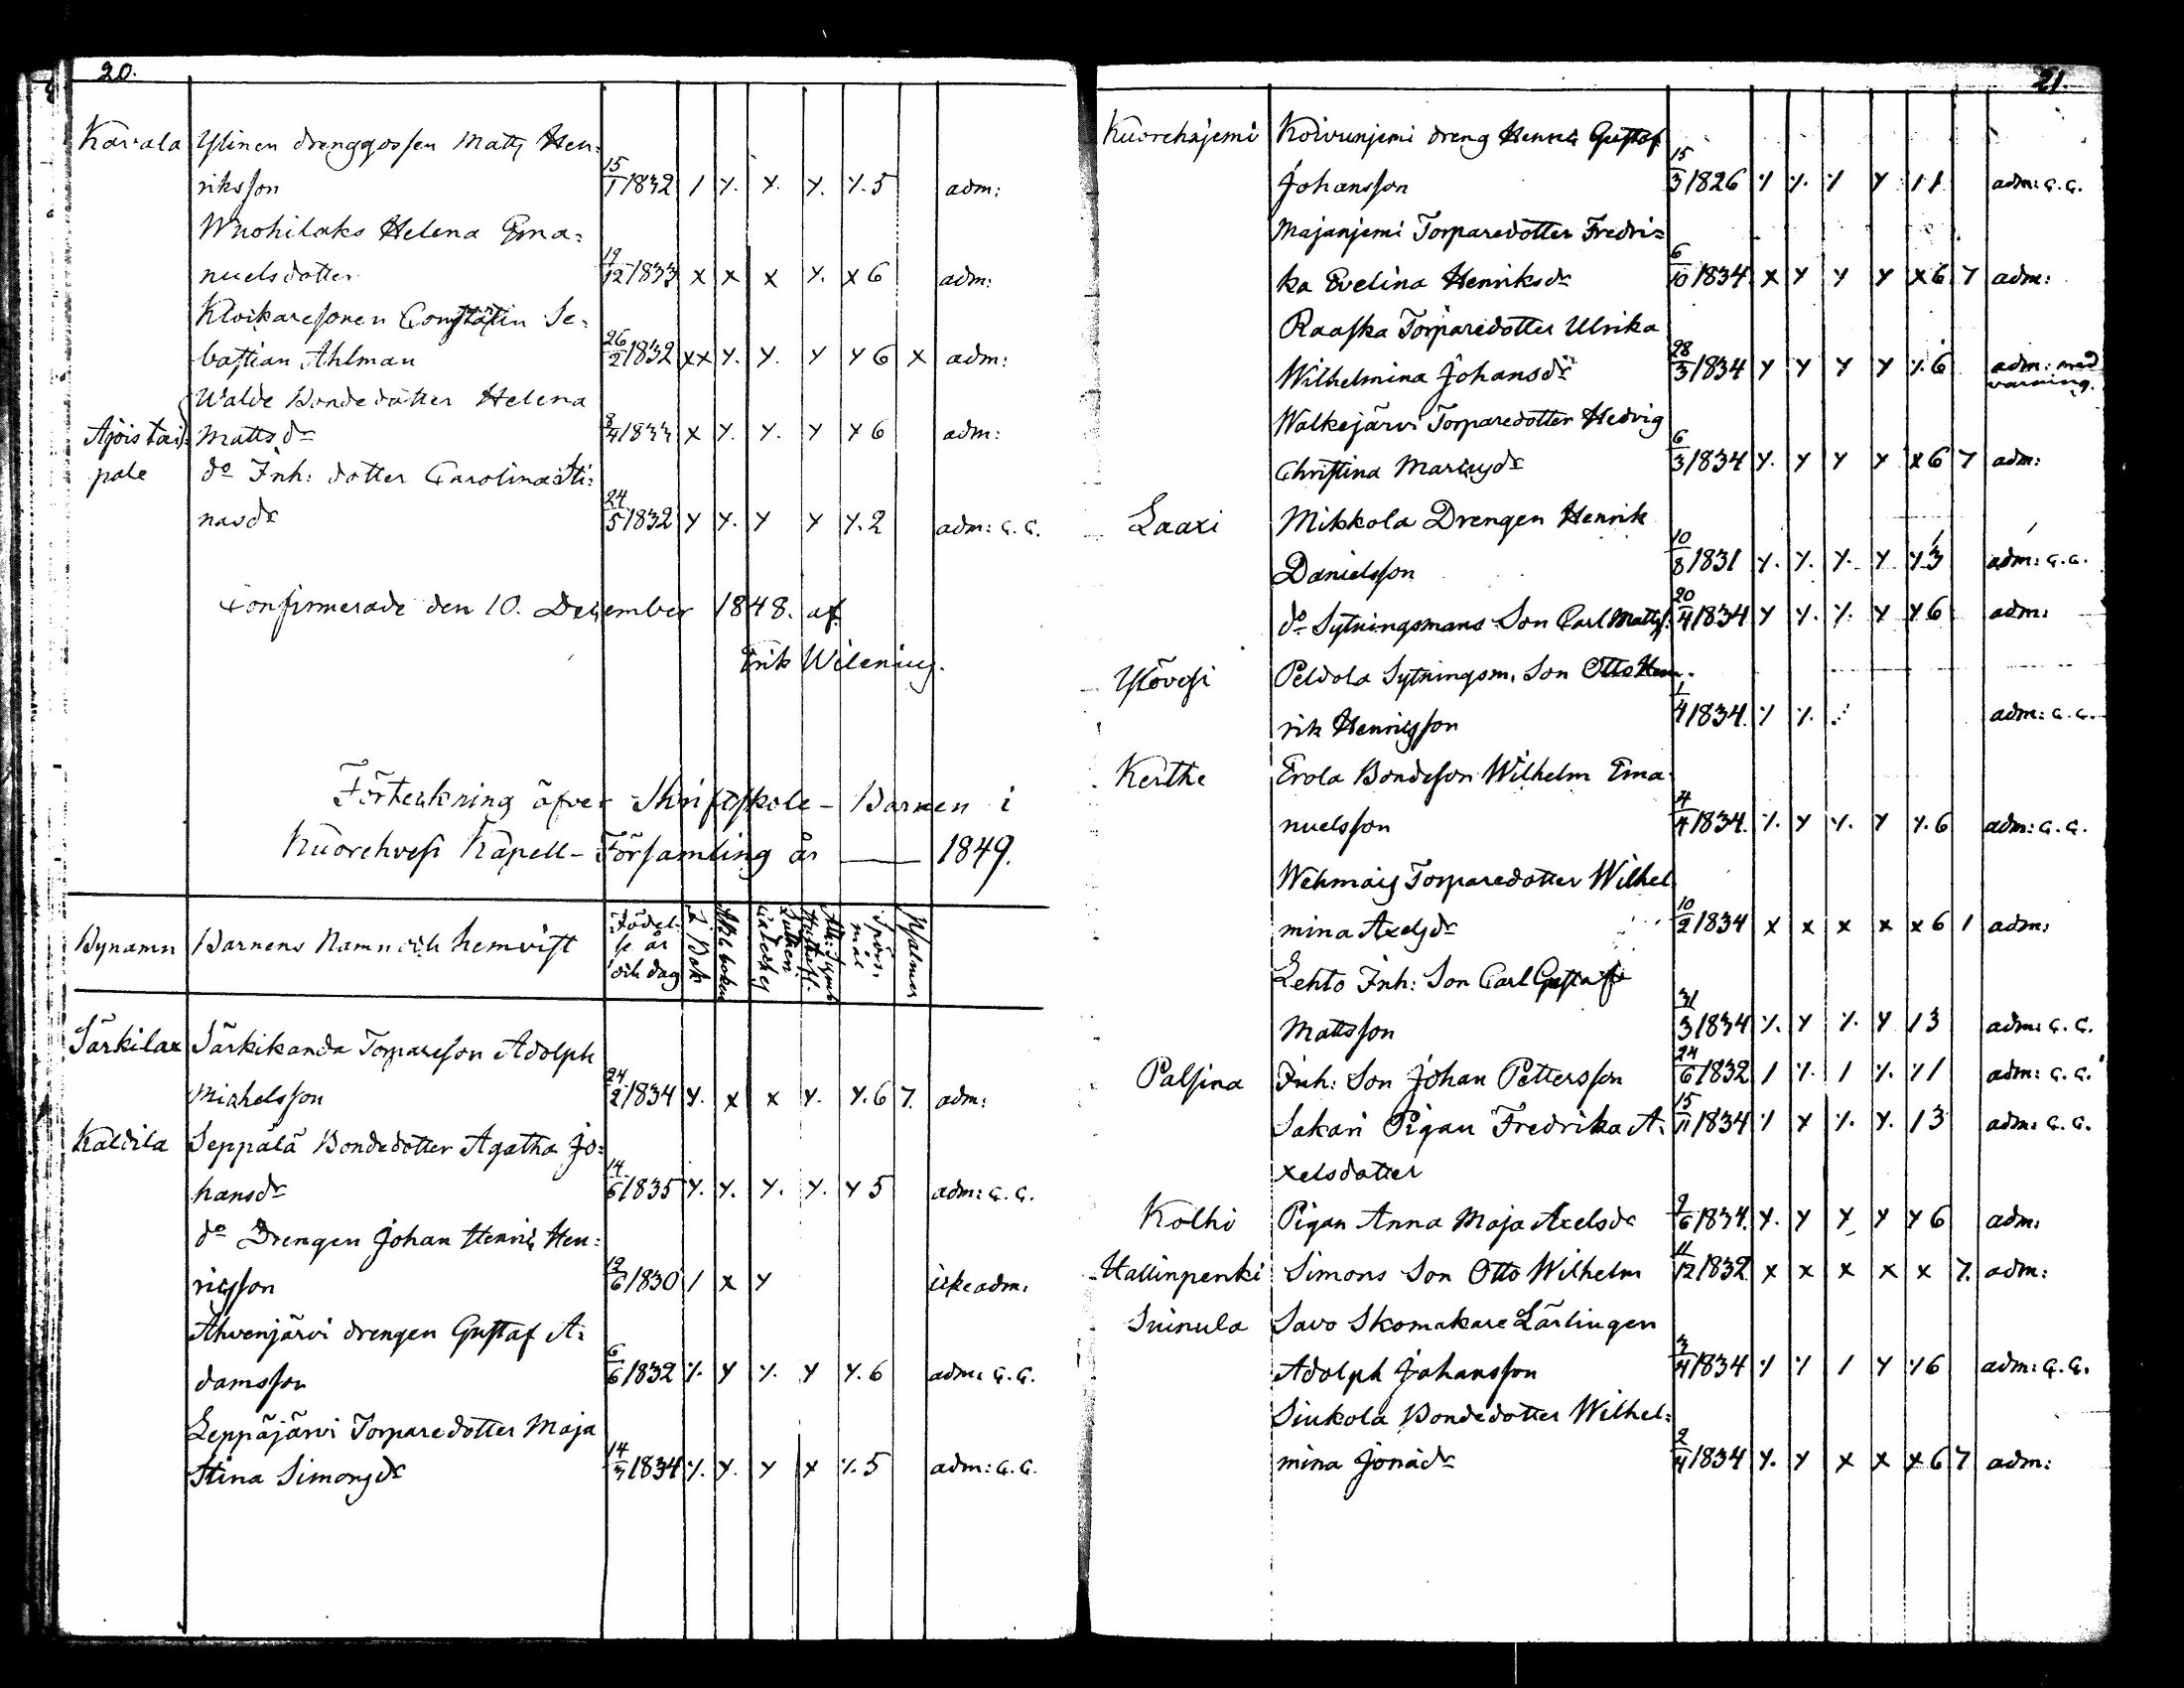 20.
Karala Ylinen drenggossen Matts Hen=
riksson 15/1 1832 / y. y. y. y. 5 adm:
Wuohilaks Helena Ema=
nuelsdotter 19/12 1833 x x x y. x 6 adm:
Klockaresonen Constantin Se=
bastian Ahlman 26/2 1832 xx y. y. y y 6 x adm:
Walde Bondedotter Helena
Ajois tai= Mattsdr 8/4 1833 x y. y. y y 6 adm:
pale do Inh: dotter Carolina Sti=
nasdr 24/5 1832 y y. y y y. 2 adm: c. c.
Confirmerade den 10. December 1848. af
Erik Wilenius.
Förteckning öfver Skriftskole-Barnen i
Kuorehvesi Kapell-Församling år — 1849.
Bynamn Barnens Namn och hemvist Födel- se år och dag I. Bok Abc boken Lutheri Catechs Ath: Symb Hustafl. Spörs- mål Psalmer
Särkilax Särkikanda Torpareson Adolph
Michelsson 24/2 1834 y. x x y. y. 6 7. adm:
Kaldila Seppälä Bondedotter Agatha Jo=
hansdr 14/6 1835 y. y. y. y. y 5 adm: c. c.
do Drengen Johan Henric Hen=
ricsson 12/6 1830 / x y icke adm.
Ahvenjärvi drengen Gustaf A=
damsson 6/6 1832 y. y y. y y. 6 adm: c. c.
Leppäjärvi Torparedotter Maja
Stina Simonsdr 14/3 1834 y. y. y x y. 5 adm: c. c.
21.
Kuorehnjemi Koivunjemi dreng Henric Gustaf
Johansson 15/3 1826 y y. y y / 1 adm: c. c.
Majanjemi Torparedotter Fredri=
ka Evelina Henriksdr 6/10 1834 x y y y x 6 7 adm:
Raaska Torparedotter Ulrika
Wilhelmina Johansdr 28/3 1834 y y y y y. 6 adm: med
varning.
Walkejärvi Torparedotter Hedvig
Christina Mariædr 6/3 1834 y. y y y x 6 7 adm:
Laari Mikkola Drengen Henrik
Danielsson 10/8 1831 y. y. y. y y 3 adm: c. c.
do Sytningsmans Son Carl Matts. 20/4 1834 y y. y. y y 6 adm:
Ylövesi Peldola Sytningsm. Son Otto Hen-
rik Henricsson 1/4 1834. y y. adm: c. c.
Kerthe Erola Bondeson Wilhelm Ema
nuelsson 4/4 1834. y. y y. y y. 6 adm: c. c.
Wehmais Torparedotter Wilhel
mina Axelsdr 10/2 1834 x x x x x 6 1 adm:
Lehto Inh: Son Carl Gustaf
Mattsson 31/3 1834 y. y y. y / 3 adm: c. c.
Palsina Inh: Son Johan Pettersson 24/6 1832 / y. / y. y 1 adm: c. c.
Sakari Pigan Fredrika A= 15/11 1834 y x y. y. / 3 adm: c. c.
xelsdotter
Kolhi Pigan Anna Maja Axelsdr 9/6 1834. y. y y y y 6 adm:
Hallinpenki Simons Son Otto Wilhelm 11/12 1832 x x x x x 7. adm:
Suinula Savo Skomakare Lärlingen
Adolph Johansson 3/4 1834 y y / y y 6 adm: c. c.
Siukola Bondedotter Wilhel=
mina Jonædr 2/4 1834 y. y x x x 6 7 adm: